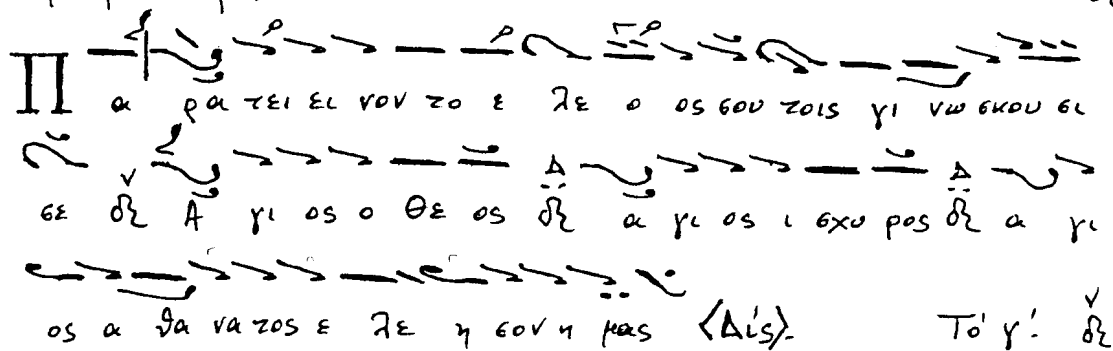 Πα ρα τει ει νον το ε λε ο ος σου τοις γι νω σκου σι
σε Α γι ος ο Θε ος α γι ος ι σχυ ρος α γι
ος α θα να τος ε λε η σον η μας (Δίς). Τό γ'.